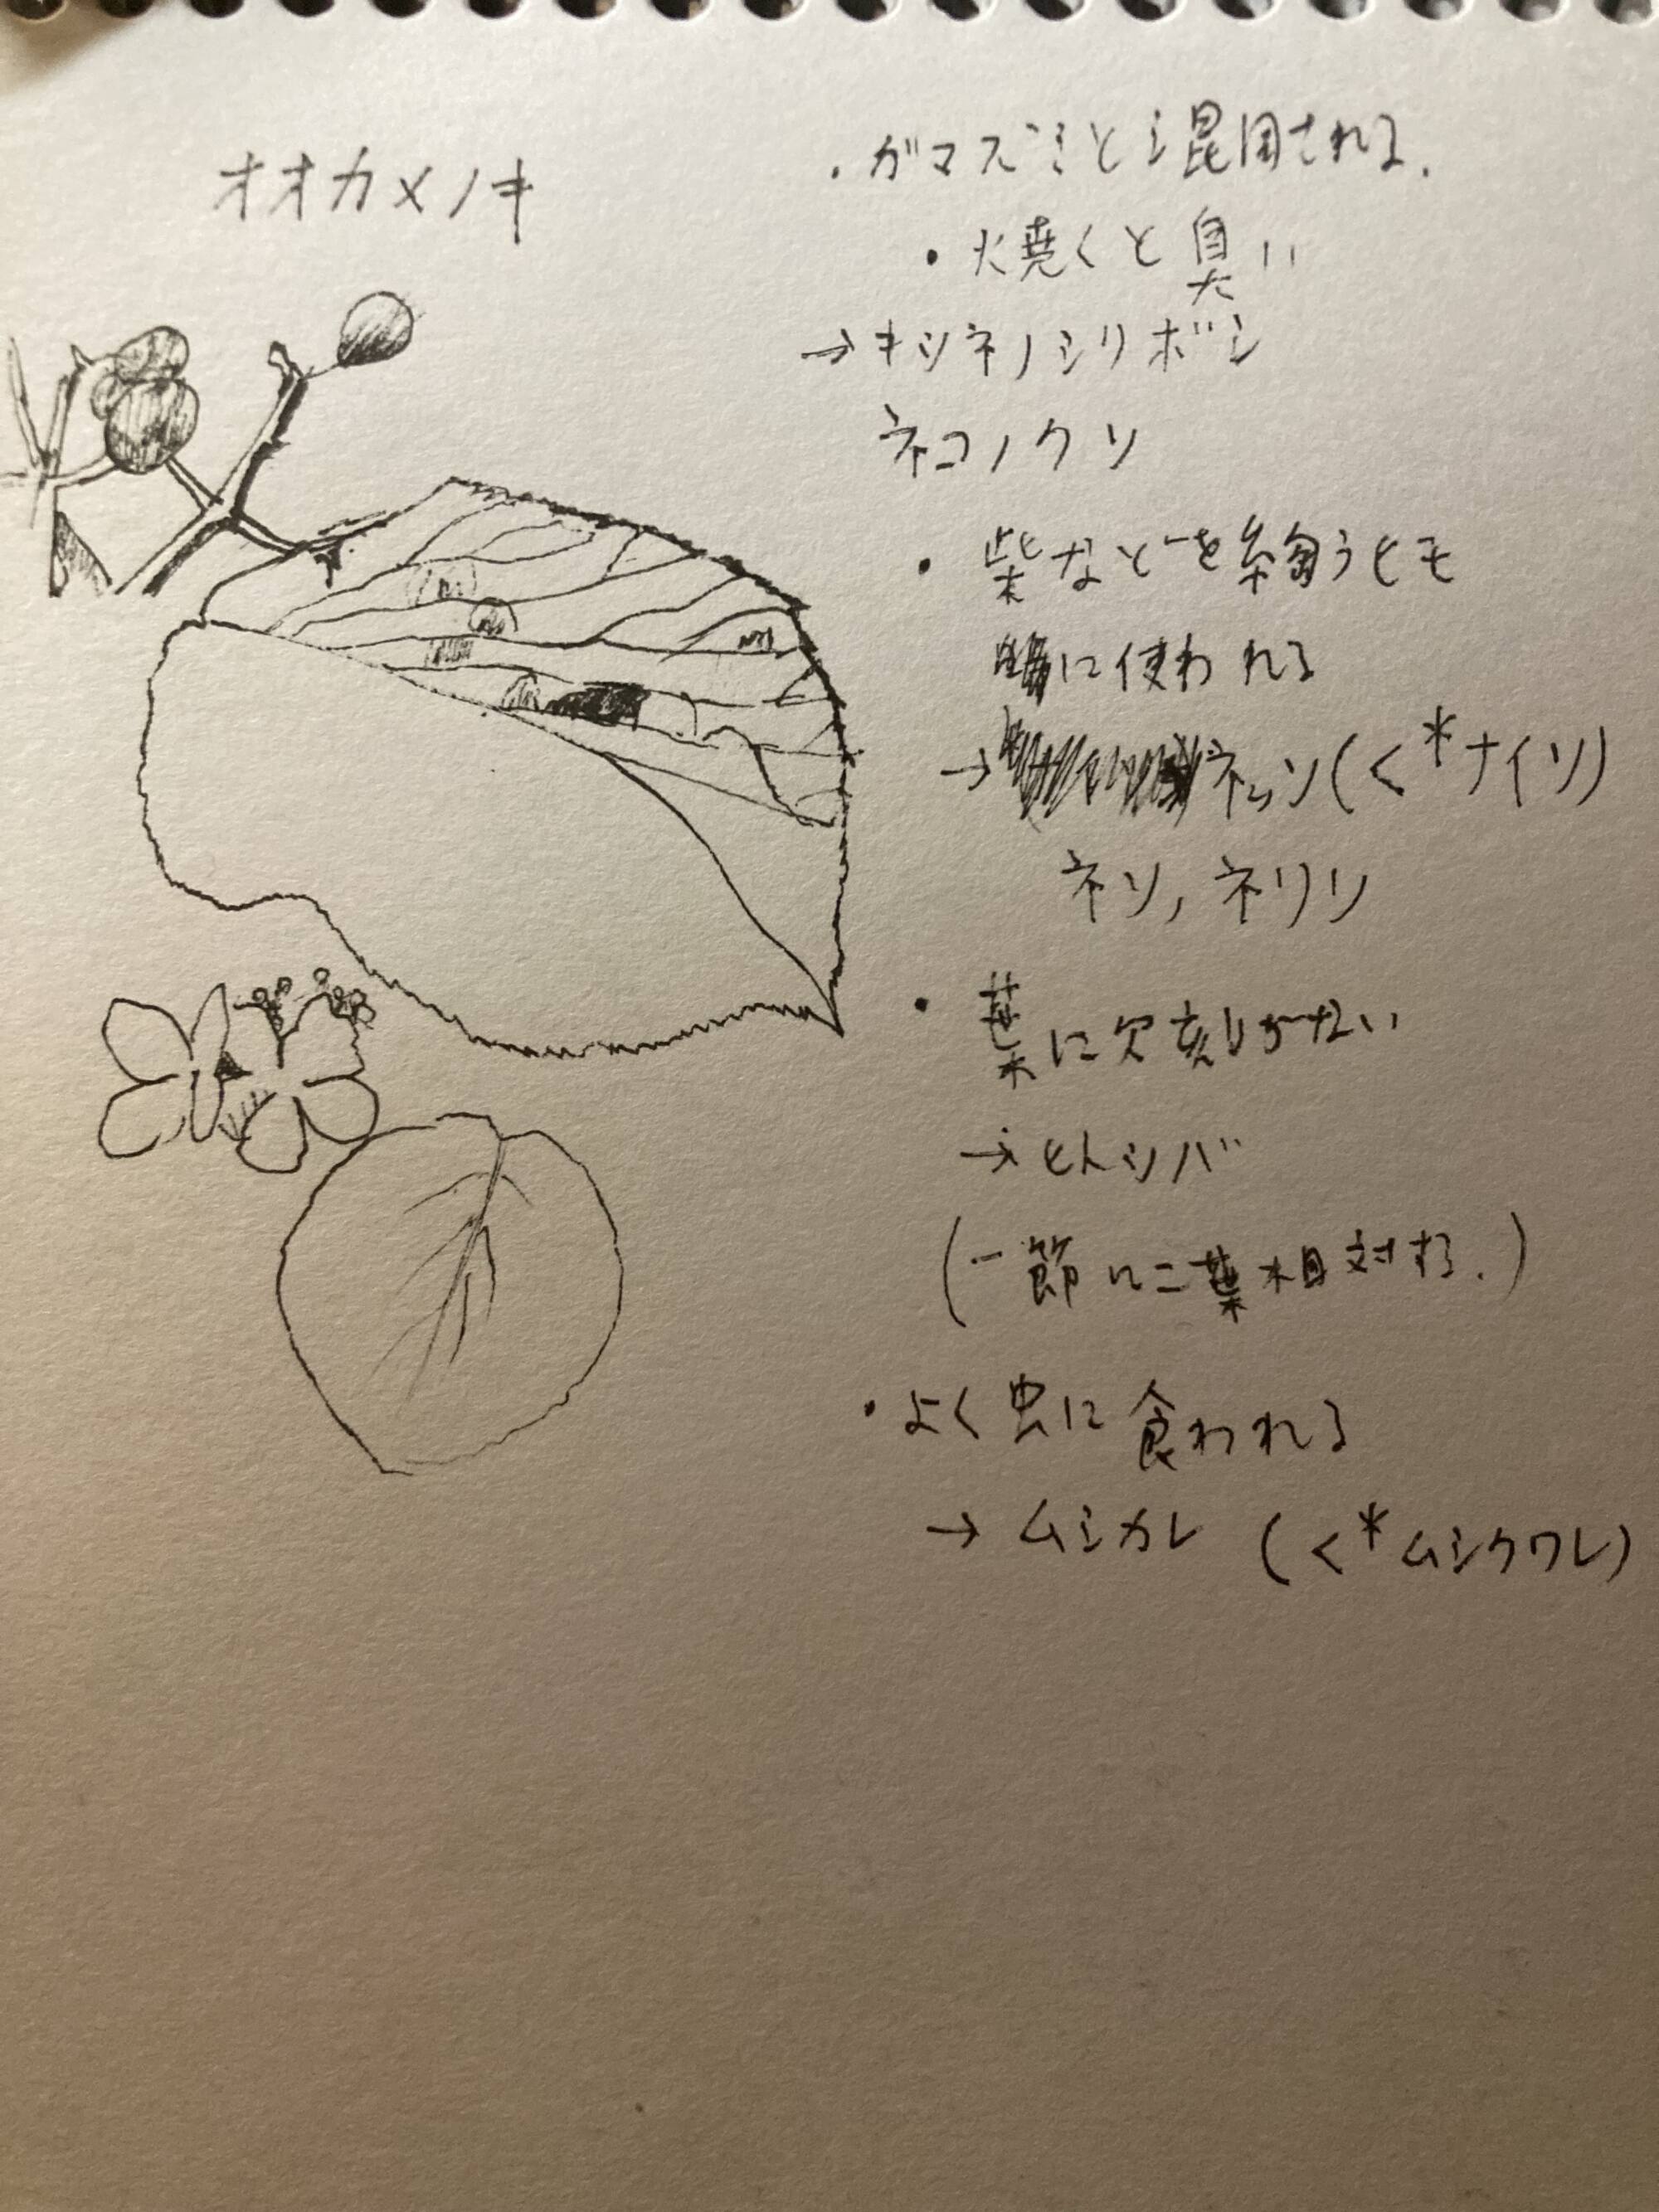 オオカメノキ
・ガマズミとシ混同される.
・焼くと臭い
→キツネノシリボシ
ネコノクソ
・柴などを綯うヒモ
に使われる
→ネッソ(<*ナイソ)
ネソ,ネリソ
・葉に欠刻がない
→ヒトシバ
(一節に二葉相対する.)
・よく虫に食われる
→ムシカレ (<*ムシクワレ)